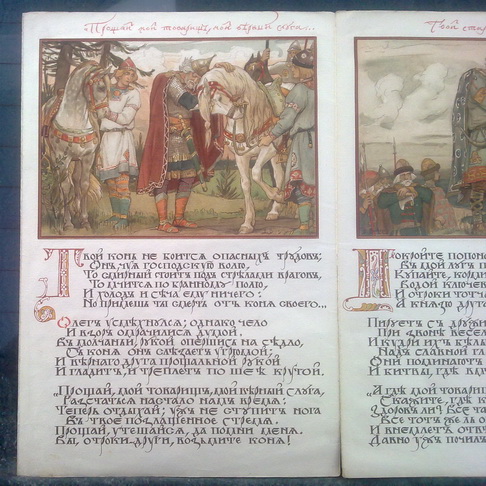 «Прощай мой товарищъ, мой вѣрный слуга...
Твой конь не боится опасныхъ трудовъ;
Онъ, чуя господскую волю,
То смирный стоитъ подъ стрѣлами враговъ,
То мчится по бранному полю,
И холодъ и сѣча ему ничего:
Но примешь ты смерть отъ коня своего...
Олегъ усмѣхнулся; однако чело
И взоръ омрачилися думой.
Въ молчаньи, рукой опершись на сѣдло,
Съ коня онъ слѣзаетъ угрюмой;
И вѣрнаго друга прощальной рукой
И гладитъ, и треплетъ по шеѣ крутой.
„Прощай, мой товарищъ, мой вѣрный слуга,
Разстаться настало намъ время:
Теперь отдыхай; ужъ не ступитъ нога
Въ твое позлащенное стремя.
Прощай, утѣшайся, да помни меня.
Вы, отроки-други, возьмите коня!
Твой ста
Покройте попоно
Въ мой лугъ п
Купайте, корми
Водой ключев
И отроки тотч
А князю друго
Пируетъ съ дружи
При звонѣ весел
И кудри ихъ бѣлы
Надъ славной гла
Они поминаютъ
И битвы, гдѣ вм
„А гдѣ мой товарищ
Скажите, гдѣ к
Здоровъ ли? Все та
Все тотъ же ль о
И внемлетъ отвѣ
Давно ужъ почил